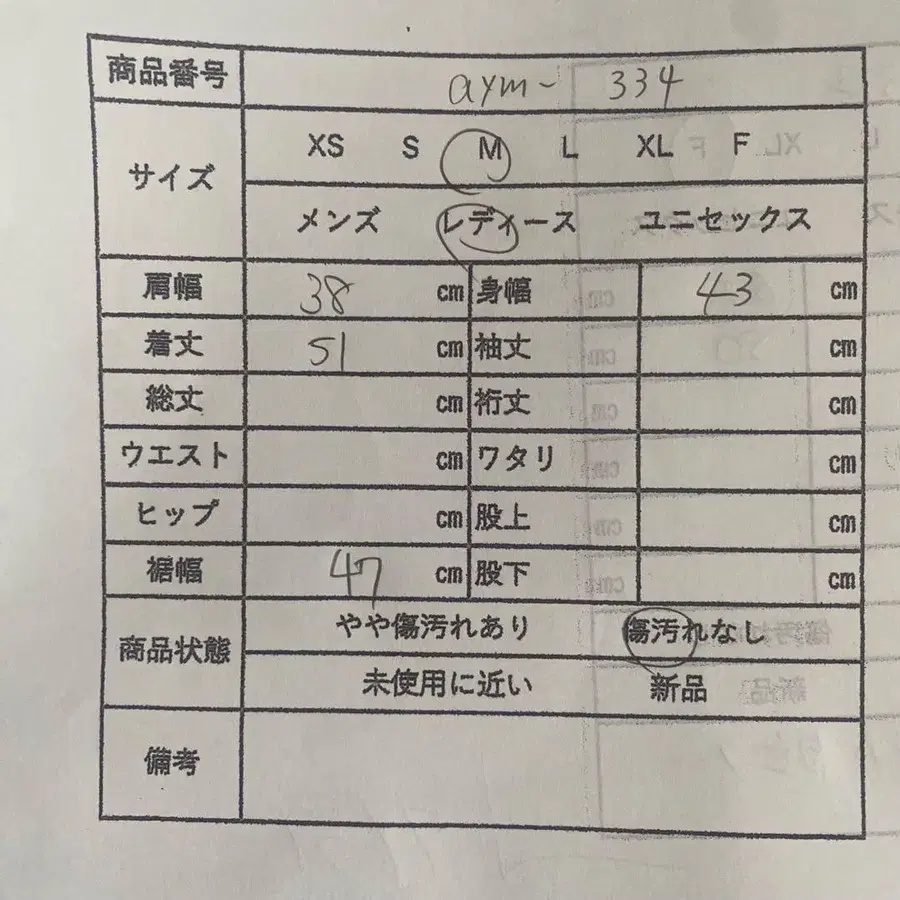 商品番号 aym- 334
サイズ XS S M L XL F
メンズ レディース ユニセックス
肩幅 38 cm 身幅 43 cm
着丈 51 cm 袖丈 cm
総丈 cm 裄丈 cm
ウエスト cm ワタリ cm
ヒップ cm 股上 cm
裾幅 47 cm 股下 cm
商品状態 やや傷汚れあり 傷汚れなし
未使用に近い 新品
備考